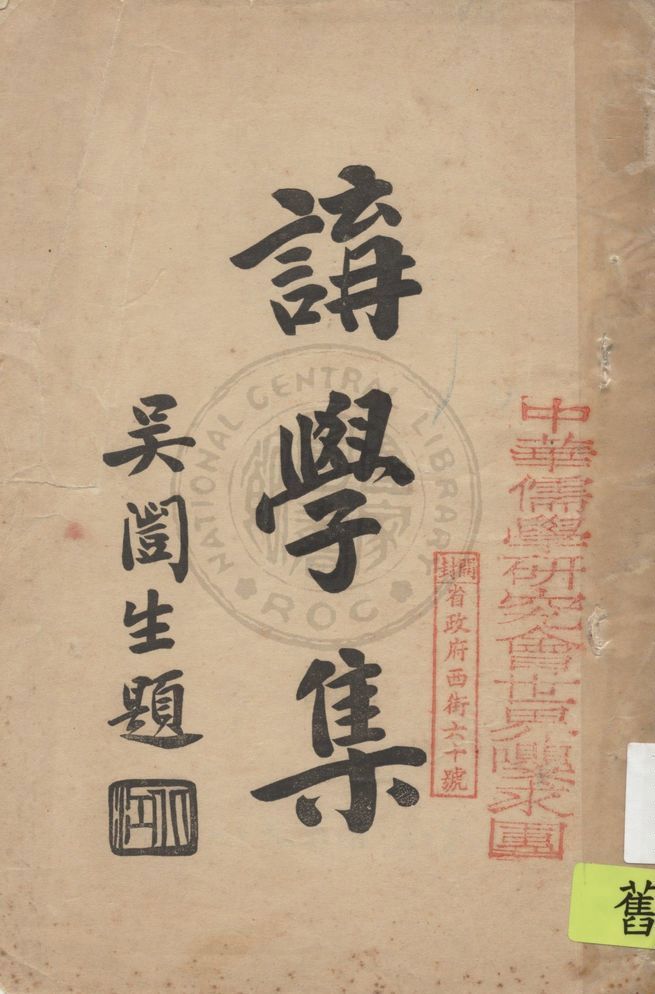 中華儒學研究會世界嚶求團
開封
省政府西街六十號
講學集
吳闓生題
NATIONAL CENTRAL LIBRARY
ROC
舊